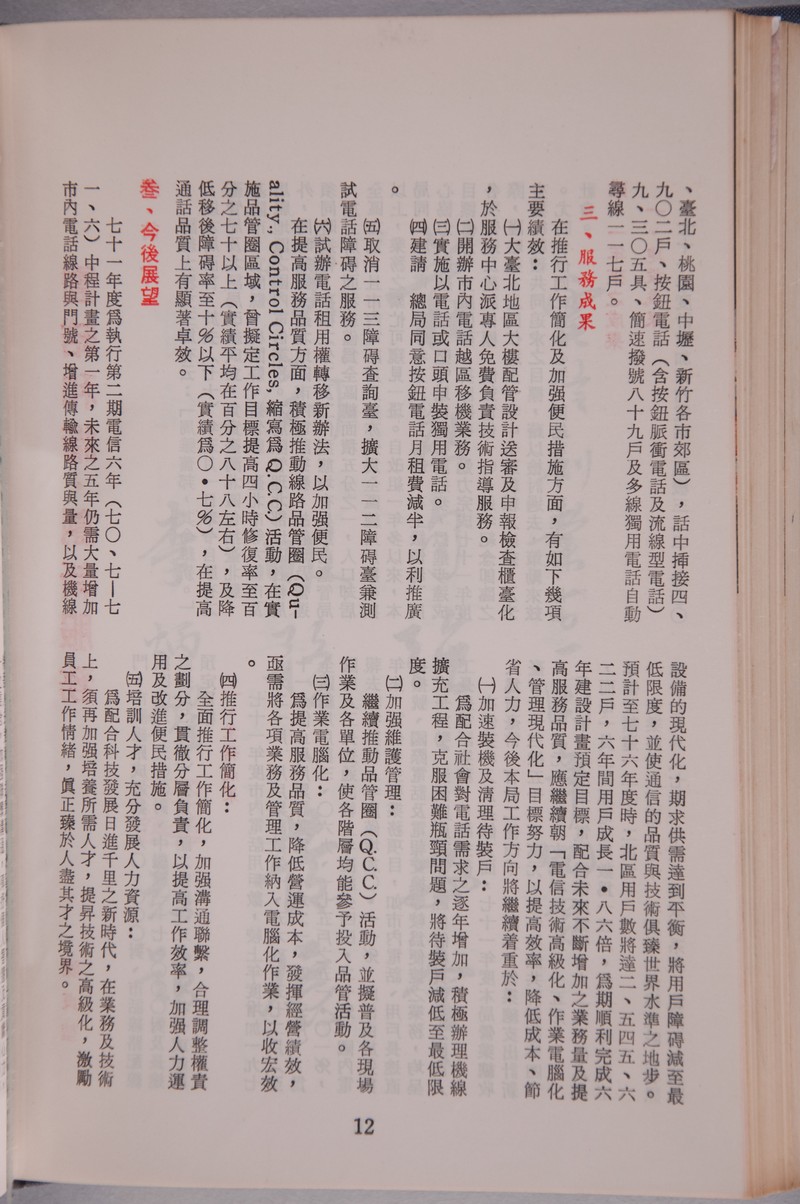 、臺北、桃園、中壢、新竹各市郊區），話中揷接四、
九〇二戶、按鈕電話（含按鈕脈衝電話及流線型電話）
九、三〇五具、簡速撥號八十九戶及多線獨用電話自動
尋線一一七戶。
三、服務成果
在推行工作簡化及加强便民措施方面，有如下幾項
主要績效：
㈠大臺北地區大樓配管設計送審及申報檢查櫃臺化
，於服務中心派專人免費負責技術指導服務。
㈡開辦市內電話越區移機業務。
㈢實施以電話或口頭申裝獨用電話。
㈣建請　總局同意按鈕電話月租費減半，以利推廣
。
㈤取消一一三障碍查詢臺，擴大一一二障碍臺兼測
試電話障碍之服務。
㈥試辦電話租用權轉移新辦法，以加强便民。
在提高服務品質方面，積極推動線路品管圈（Qu-
ality., Control Circles, 縮寫爲 Q.C.C.）活動，在實
施品管圈區域，曾擬定工作目標提高四小時修復率至百
分之七十以上（實績平均在百分之八十八左右），及降
低移後障碍率至十％以下（實績爲〇•七％），在提高
通話品質上有顯著卓效。
叁、今後展望
七十一年度爲執行第二期電信六年（七〇、七—七
一、六）中程計畫之第一年，未來之五年仍需大量增加
市內電話線路與門號、增進傳輸線路質與量，以及機線
設備的現代化，期求供需達到平衡，將用戶障碍減至最
低限度，並使通信的品質與技術俱臻世界水準之地步。
預計至七十六年度時，北區用戶數將達二、五四五、六
二二戶，六年間用戶成長一•八六倍，爲期順利完成六
年建設計畫預定目標，配合未來不斷增加之業務量及提
高服務品質，應繼續朝「電信技術高級化、作業電腦化
、管理現代化」目標努力，以提高效率，降低成本、節
省人力，今後本局工作方向將繼續着重於：
㈠加速裝機及淸理待裝戶：
爲配合社會對電話需求之逐年增加，積極辦理機線
擴充工程，克服困難瓶頸問題，將待裝戶減低至最低限
度。
㈡加强維護管理：
繼續推動品管圈（Q.C.C.）活動，並擬普及各現場
作業及各單位，使各階層均能參予投入品管活動。
㈢作業電腦化：
爲提高服務品質，降低營運成本，發揮經營績效，
亟需將各項業務及管理工作納入電腦化作業，以收宏效
。
㈣推行工作簡化：
全面推行工作簡化，加强溝通聯繫，合理調整權責
之劃分，貫徹分層負責，以提高工作效率，加强人力運
用及改進便民措施。
㈤培訓人才，充分發展人力資源：
爲配合科技發展日進千里之新時代，在業務及技術
上，須再加强培養所需人才，提昇技術之高級化，激勵
員工工作情緖，眞正臻於人盡其才之境界。
12